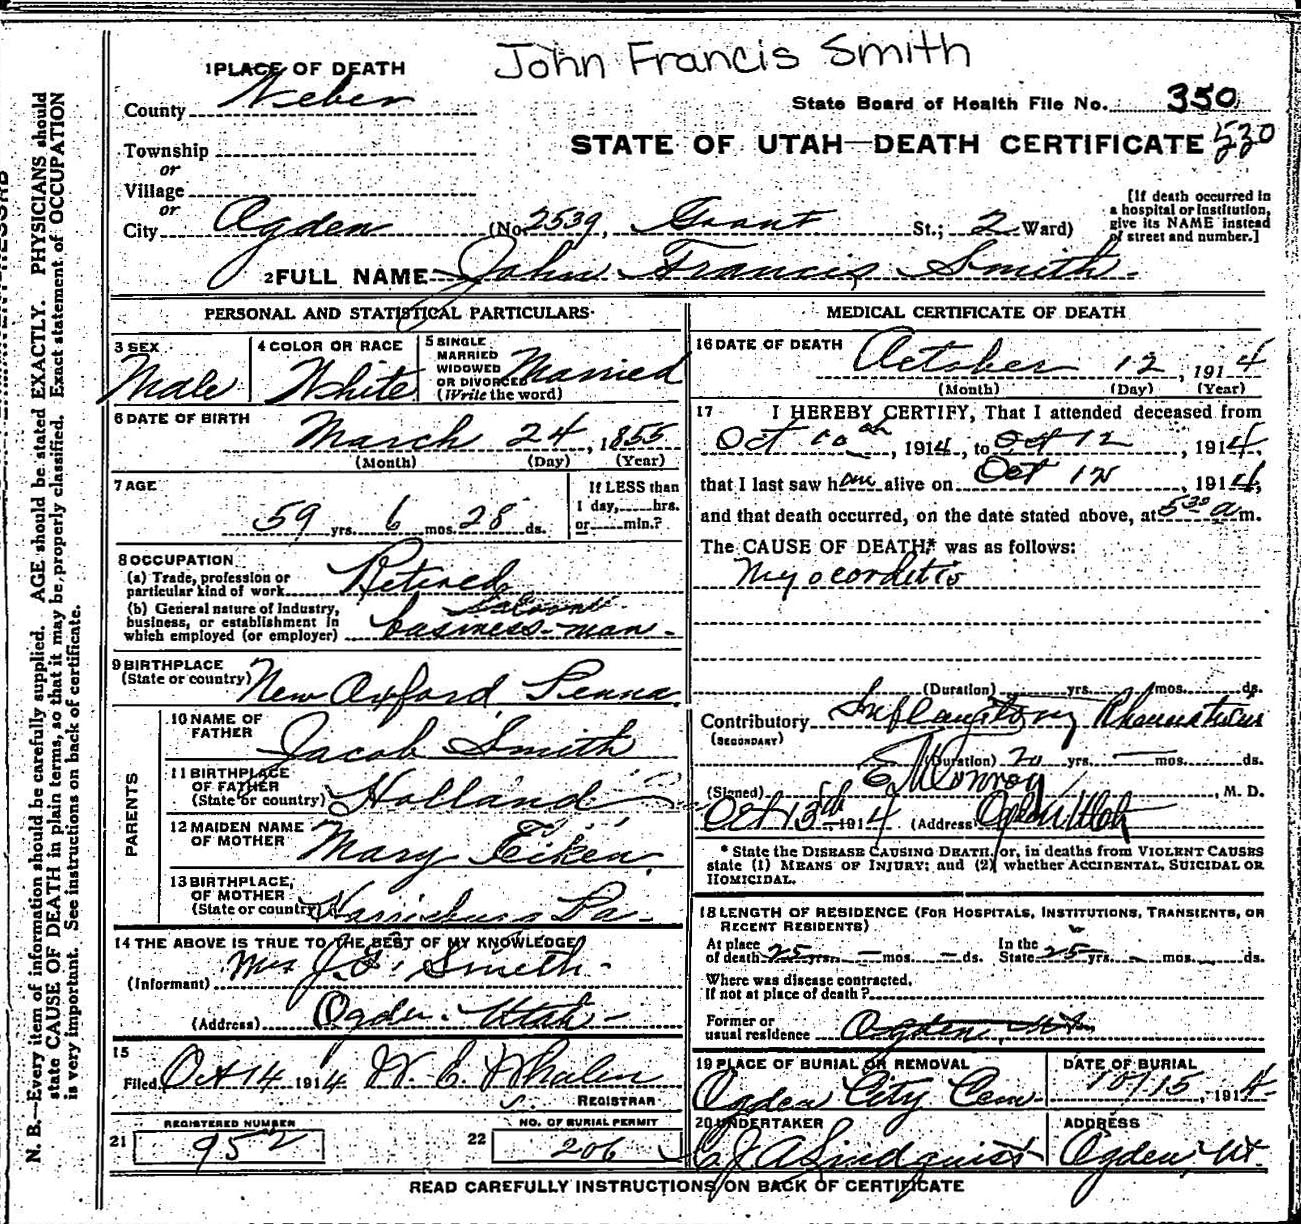 John Francis Smith
1 PLACE OF DEATH
County Weber
State Board of Health File No. 350
STATE OF UTAH—DEATH CERTIFICATE 530
Township
or
Village
or
City Ogden (No. 2539, Grant St.; 2 Ward)
[If death occurred in
a hospital or institution,
give its NAME instead
of street and number.]
2 FULL NAME John Francis Smith
PERSONAL AND STATISTICAL PARTICULARS
3 SEX
Male
4 COLOR OR RACE
White
5 SINGLE
MARRIED
WIDOWED
OR DIVORCED
(Write the word)
Married
6 DATE OF BIRTH
March 24, 1855
(Month) (Day) (Year)
7 AGE
59 yrs. 6 mos. 28 ds.
If LESS than
1 day,......hrs.
or......min.?
8 OCCUPATION
(a) Trade, profession or
particular kind of work Retired
(b) General nature of Industry,
business, or establishment in
which employed (or employer) Saloon
business-man-
9 BIRTHPLACE
(State or country) New Oxford, Penna.
PARENTS
10 NAME OF
FATHER Jacob Smith
11 BIRTHPLACE
OF FATHER
(State or country) Holland
12 MAIDEN NAME
OF MOTHER Mary Eiken
13 BIRTHPLACE,
OF MOTHER
(State or country) Harrisburg Pa-
14 THE ABOVE IS TRUE TO THE BEST OF MY KNOWLEDGE
(Informant) Mrs J.F. Smith-
(Address) Ogden. Utah-
15
Filed Oct 14 1914 W. E. Whalen
REGISTRAR
REGISTERED NUMBER
21 952
NO. OF BURIAL PERMIT
22 206
MEDICAL CERTIFICATE OF DEATH
16 DATE OF DEATH
October 12, 1914
(Month) (Day) (Year)
17 I HEREBY CERTIFY, That I attended deceased from
Oct 10th, 1914, to Oct 12, 1914,
that I last saw him alive on Oct 12, 1914,
and that death occurred, on the date stated above, at 5 30 a m.
The CAUSE OF DEATH,* was as follows:
Myocorditis
(Duration) yrs. mos. ds.
Contributory Inflamatory Rheumatism
(SECONDARY)
(Duration) 20 yrs. — mos. ds.
(Signed) E M Conroy, M. D.
Oct 13th, 1914 (Address) Ogden Utah
* State the DISEASE CAUSING DEATH, or, in deaths from VIOLENT CAUSES
state (1) MEANS OF INJURY; and (2) whether ACCIDENTAL, SUICIDAL OR
HOMICIDAL.
18 LENGTH OF RESIDENCE (FOR HOSPITALS, INSTITUTIONS, TRANSIENTS, OR
RECENT RESIDENTS)
At place
of death 25 yrs. — mos. — ds.
In the
State 25 yrs. — mos. ds.
Where was disease contracted,
If not at place of death?
Former or
usual residence Ogden, Ut.
19 PLACE OF BURIAL OR REMOVAL
Ogden City Cem.
DATE OF BURIAL
10/15, 1914
20 UNDERTAKER
C J A Lindquist
ADDRESS
Ogden, Ut.
READ CAREFULLY INSTRUCTIONS ON BACK OF CERTIFICATE
N. B.—Every item of information should be carefully supplied. AGE should be stated EXACTLY. PHYSICIANS should
state CAUSE OF DEATH in plain terms, so that it may be properly classified. Exact statement of OCCUPATION
is very important. See instructions on back of certificate.